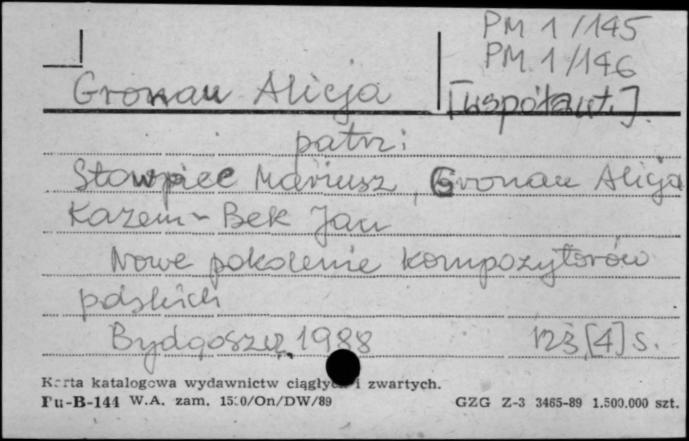 PM 1/145
PM 1/146
Gronau Alicja [współaut.]
patrz:
Słowpiec Mariusz, Gronau Alicja
Kazem-Bek Jan
Nowe pokolenie kompozytorów
polskich
Bydgoszcz, 1988 123,[4] s.
Karta katalogowa wydawnictw ciągłych i zwartych.
Pu-B-144 W.A. zam. 15:0/On/DW/89 GZG Z-3 3465-89 1.500.000 szt.